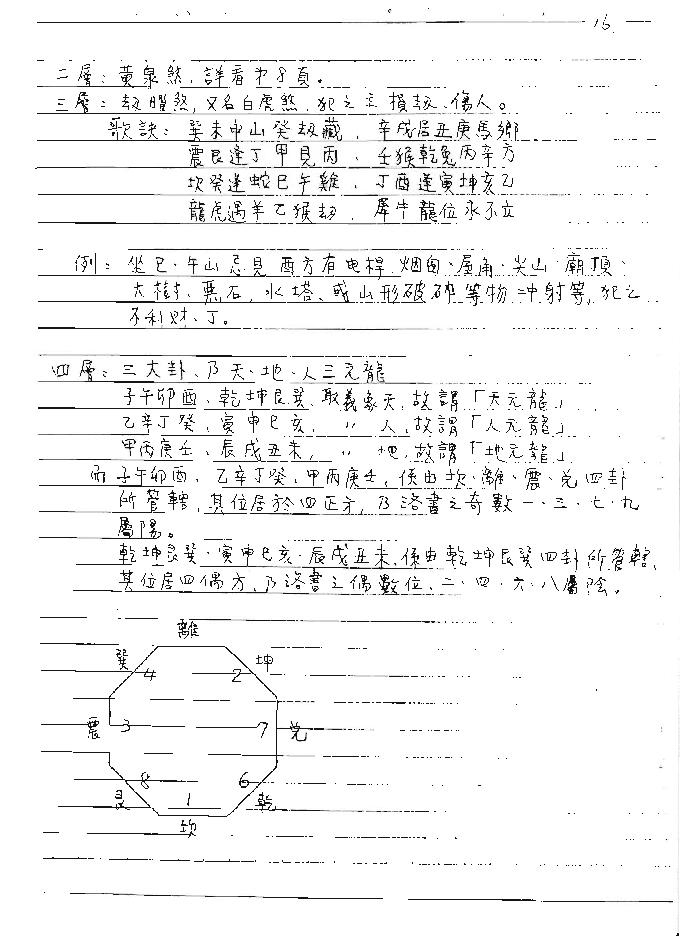 16
二層：黃泉煞，詳看中8頁。
三層：劫曜煞，又名白虎煞，犯之主損劫、傷人。
歌訣：巽未申山癸劫藏，辛戌居丑庚馬鄉
震艮逢丁甲見丙，壬猴乾兔丙辛方
坎癸逢蛇巳午雞，丁酉逢寅坤亥乙
龍虎遇羊乙猴劫，犀牛龍位永不立
例：坐巳、午山忌見酉方有电桿、烟囱、屋角、尖山、廟頂、
大樹、惡石、水塔、或山形破碎等物冲射等，犯之
不利財、丁。
四層：三大卦、乃天、地、人三元龍
子午卯酉、乾坤艮巽、取義象天，故謂「天元龍」
乙辛丁癸，寅申巳亥，〃人，故謂「人元龍」
甲丙庚壬，辰戌丑未，〃地，故謂「地元龍」
而子午卯酉、乙辛丁癸、甲丙庚壬，係由坎、離、震、兑四卦
所管轄，其位居於四正方，乃洛書之奇數一、三、七、九
屬陽。
乾坤艮巽、寅申巳亥、辰戌丑未，係由乾坤艮巽四卦所管轄，
其位居四偶方，乃洛書之偶數位，二、四、六、八屬陰。
離
巽 4 2 坤
震 3 7 兑
8 6
艮 1 乾
坎